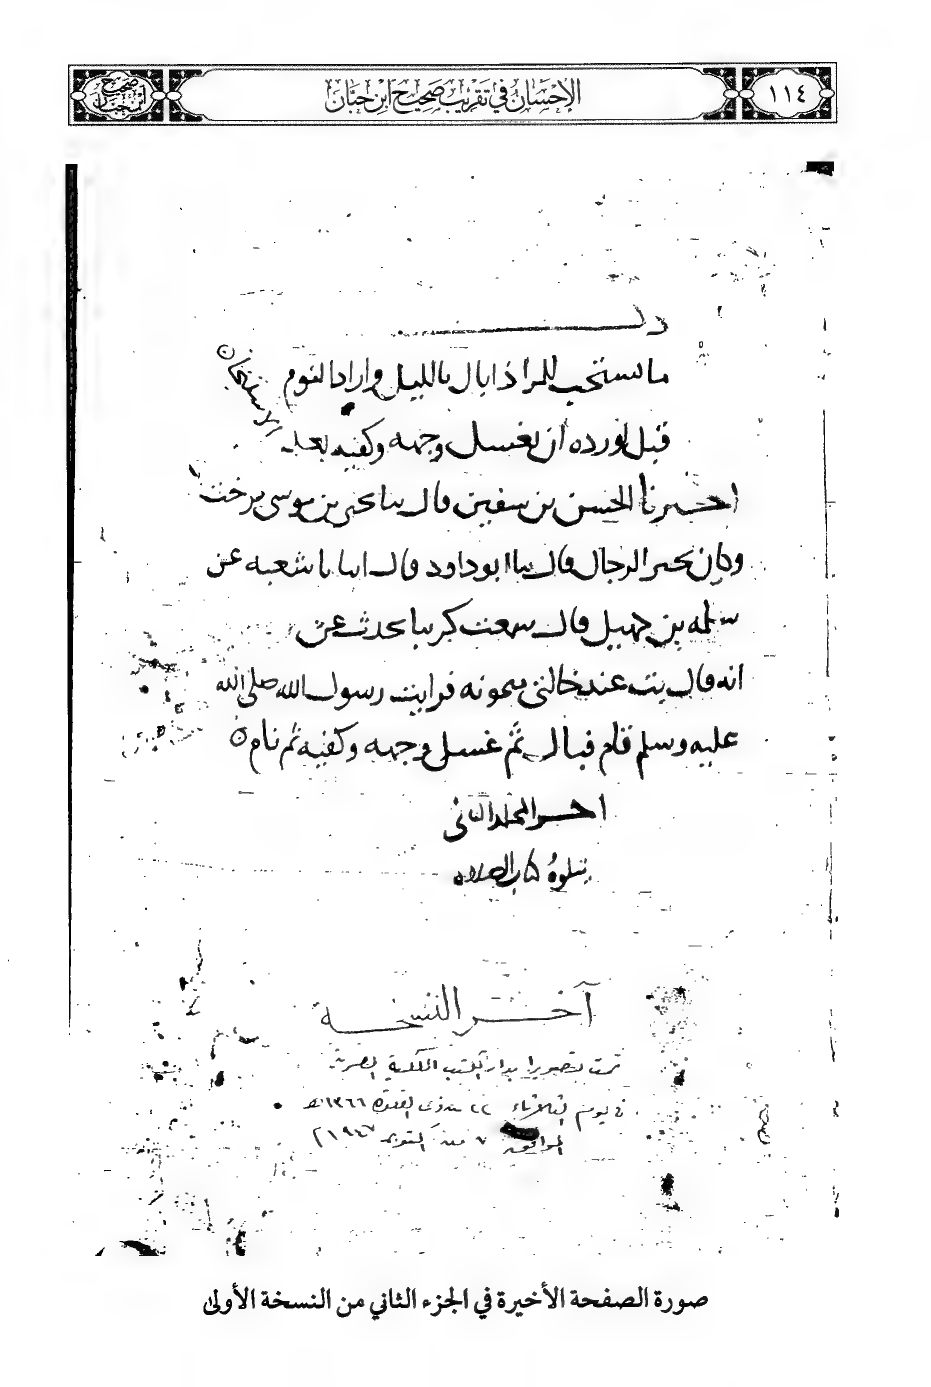 ١١٤
الإحسان في تقريب صحيح ابن حبان
صحيح ابن حبان
ذكر
ما يستحب للمرا ذا بال بالليل واراد النوم
الاستنجان
قبل لورده ان يغسل وجهه وكفيه بعد
احبرنا الحسن بن سفين قال بنا يحيى بن موسى بن خت
وكان يحير الرجال قال بنا ابو داود قال ابنا نا شعبه عن
سلمه بن كهيل قال سمعت كريبا يحدث عن
انه قال بت عند خالتى ميمونه فرايت رسول الله صلى الله
عليه وسلم قام فبال ثم غسل وجهه وكفيه ثم نام ه
اخر المجلد الثانى
يتلوه كتاب الصلاه
آخر النسخة
تمت تصويرا بدار الكتب الملكية المصرية
في يوم الثلاثاء ٢٢ من ذى القعدة ١٣٦٦ هـ
الموافق ٧ من اكتوبر ١٩٤٧ م
صورة الصفحة الأخيرة في الجزء الثاني من النسخة الأولى